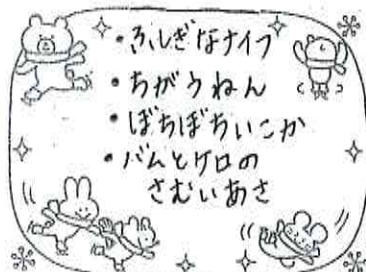 ・ふしぎなナイフ
・ちがうねん
・ぼちぼちいこか
・バムとケロの
さむいあさ